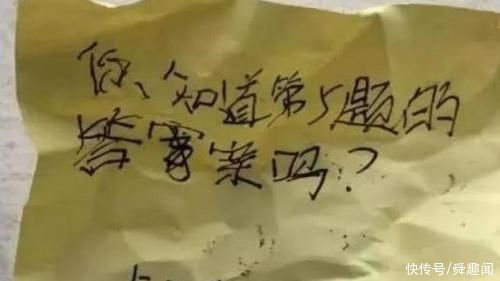 你知道第5题的
答案吗?
快传号/舜趣闻